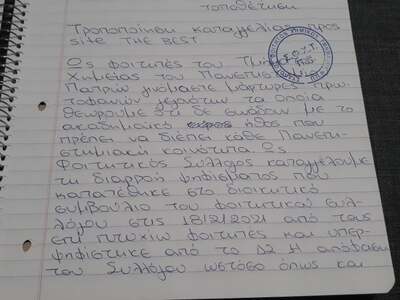 τοποθέτηση
Τροποποίηση καταγγελίας προς
site THE BEST
Ως φοιτητές του Τμήμ
Χημείας του Πανεπιστημίου
Πατρών γινόμαστε μάρτυρες πρω-
τοφανών γεγονότων τα οποία
θεωρούμε ότι δε συνάδουν με το
ακαδημαϊκό ήθος που
πρέπει να διέπει κάθε Πανεπι-
στημιακή κοινότητα. Ως
Φοιτητικός Σύλλογος καταγγέλουμε
τη διαρροή ψηφίσματος που
κατατέθηκε στο διοικητικό
συμβούλιο του φοιτητικού συλ-
λόγου στις 18/2/2021 από τους
επι πτυχίω φοιτητές και υπερ-
ψηφίστηκε από το ΔΣ. Η απόφαση
του Συλλόγου ωστόσο όπως και